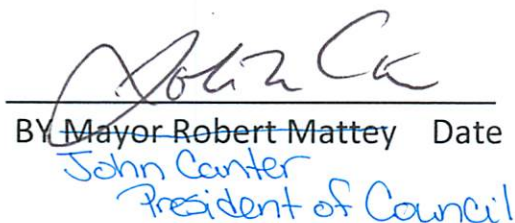 John Can
BY Mayor Robert Mattey Date
John Canter
President of Council